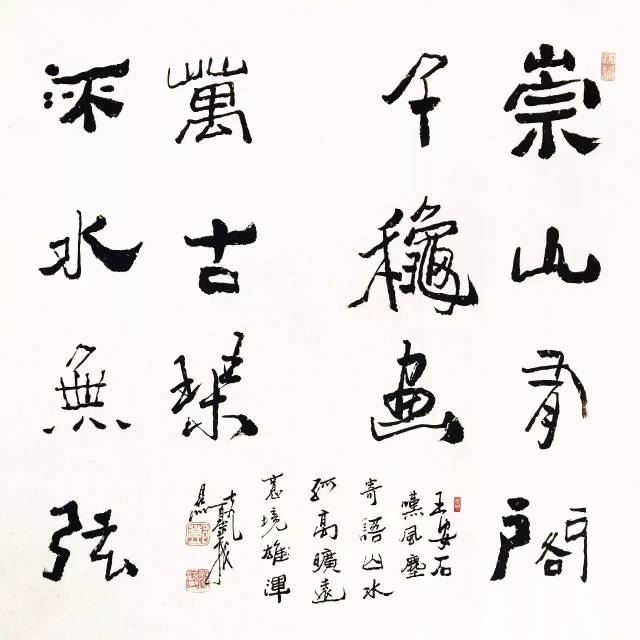 崇山有閣
千穐画
㳅水無弦
萬古琴
王安石
嘆風塵
寄語山水
孤高曠遠
意境雄渾